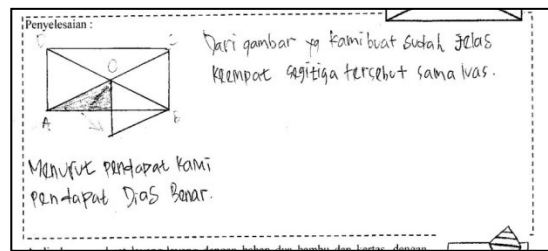 Penyelesaian :
Dari gambar yg kami buat sudah Jelas
keempat segitiga tersebut sama luas.
D
C
O
A
B
Menurut pendapat kami
pendapat Dias Benar.